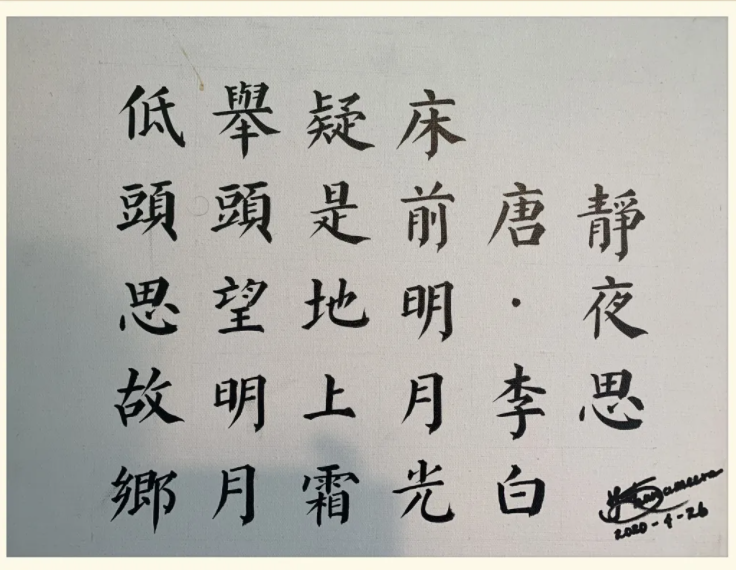 靜夜思
唐·李白
床前明月光
疑是地上霜
舉頭望明月
低頭思故鄉
2020-4-26